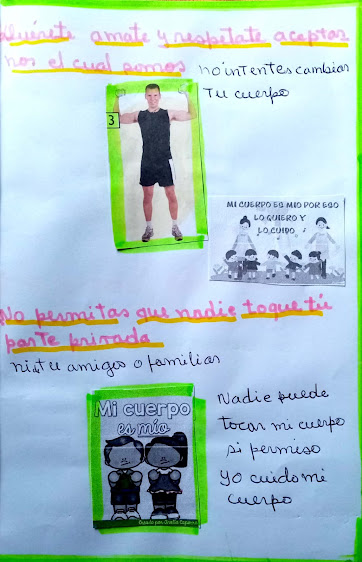 Quiérete amate y respetate aceptar
nos el cual somos
no intentes cambiar
Tu cuerpo
3
MI CUERPO ES MIO POR ESO
LO QUIERO Y
LO CUIDO
No permitas que nadie toque tú
parte privada
ni tu amigos o familiar
Mi cuerpo
es mío
Nadie puede
tocar mi cuerpo
si permiso
Yo cuido mi
cuerpo